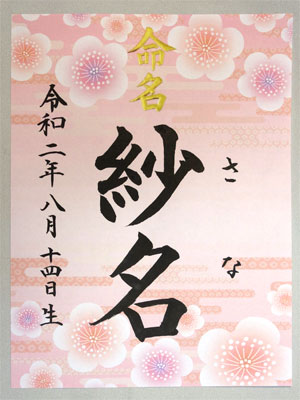 命名
さな
紗名
令和二年八月十四日生